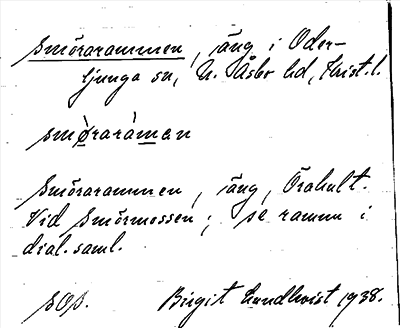 Smörarammen, äng i Oder-
ljunga sn, N. Åsbo hd, Krist. l.
smø̀raráman
Smörarammen, äng, Örahult.
Vid Smörmossen; se ramm i
dial. saml.
sOp. Birgit Lundkvist 1938.